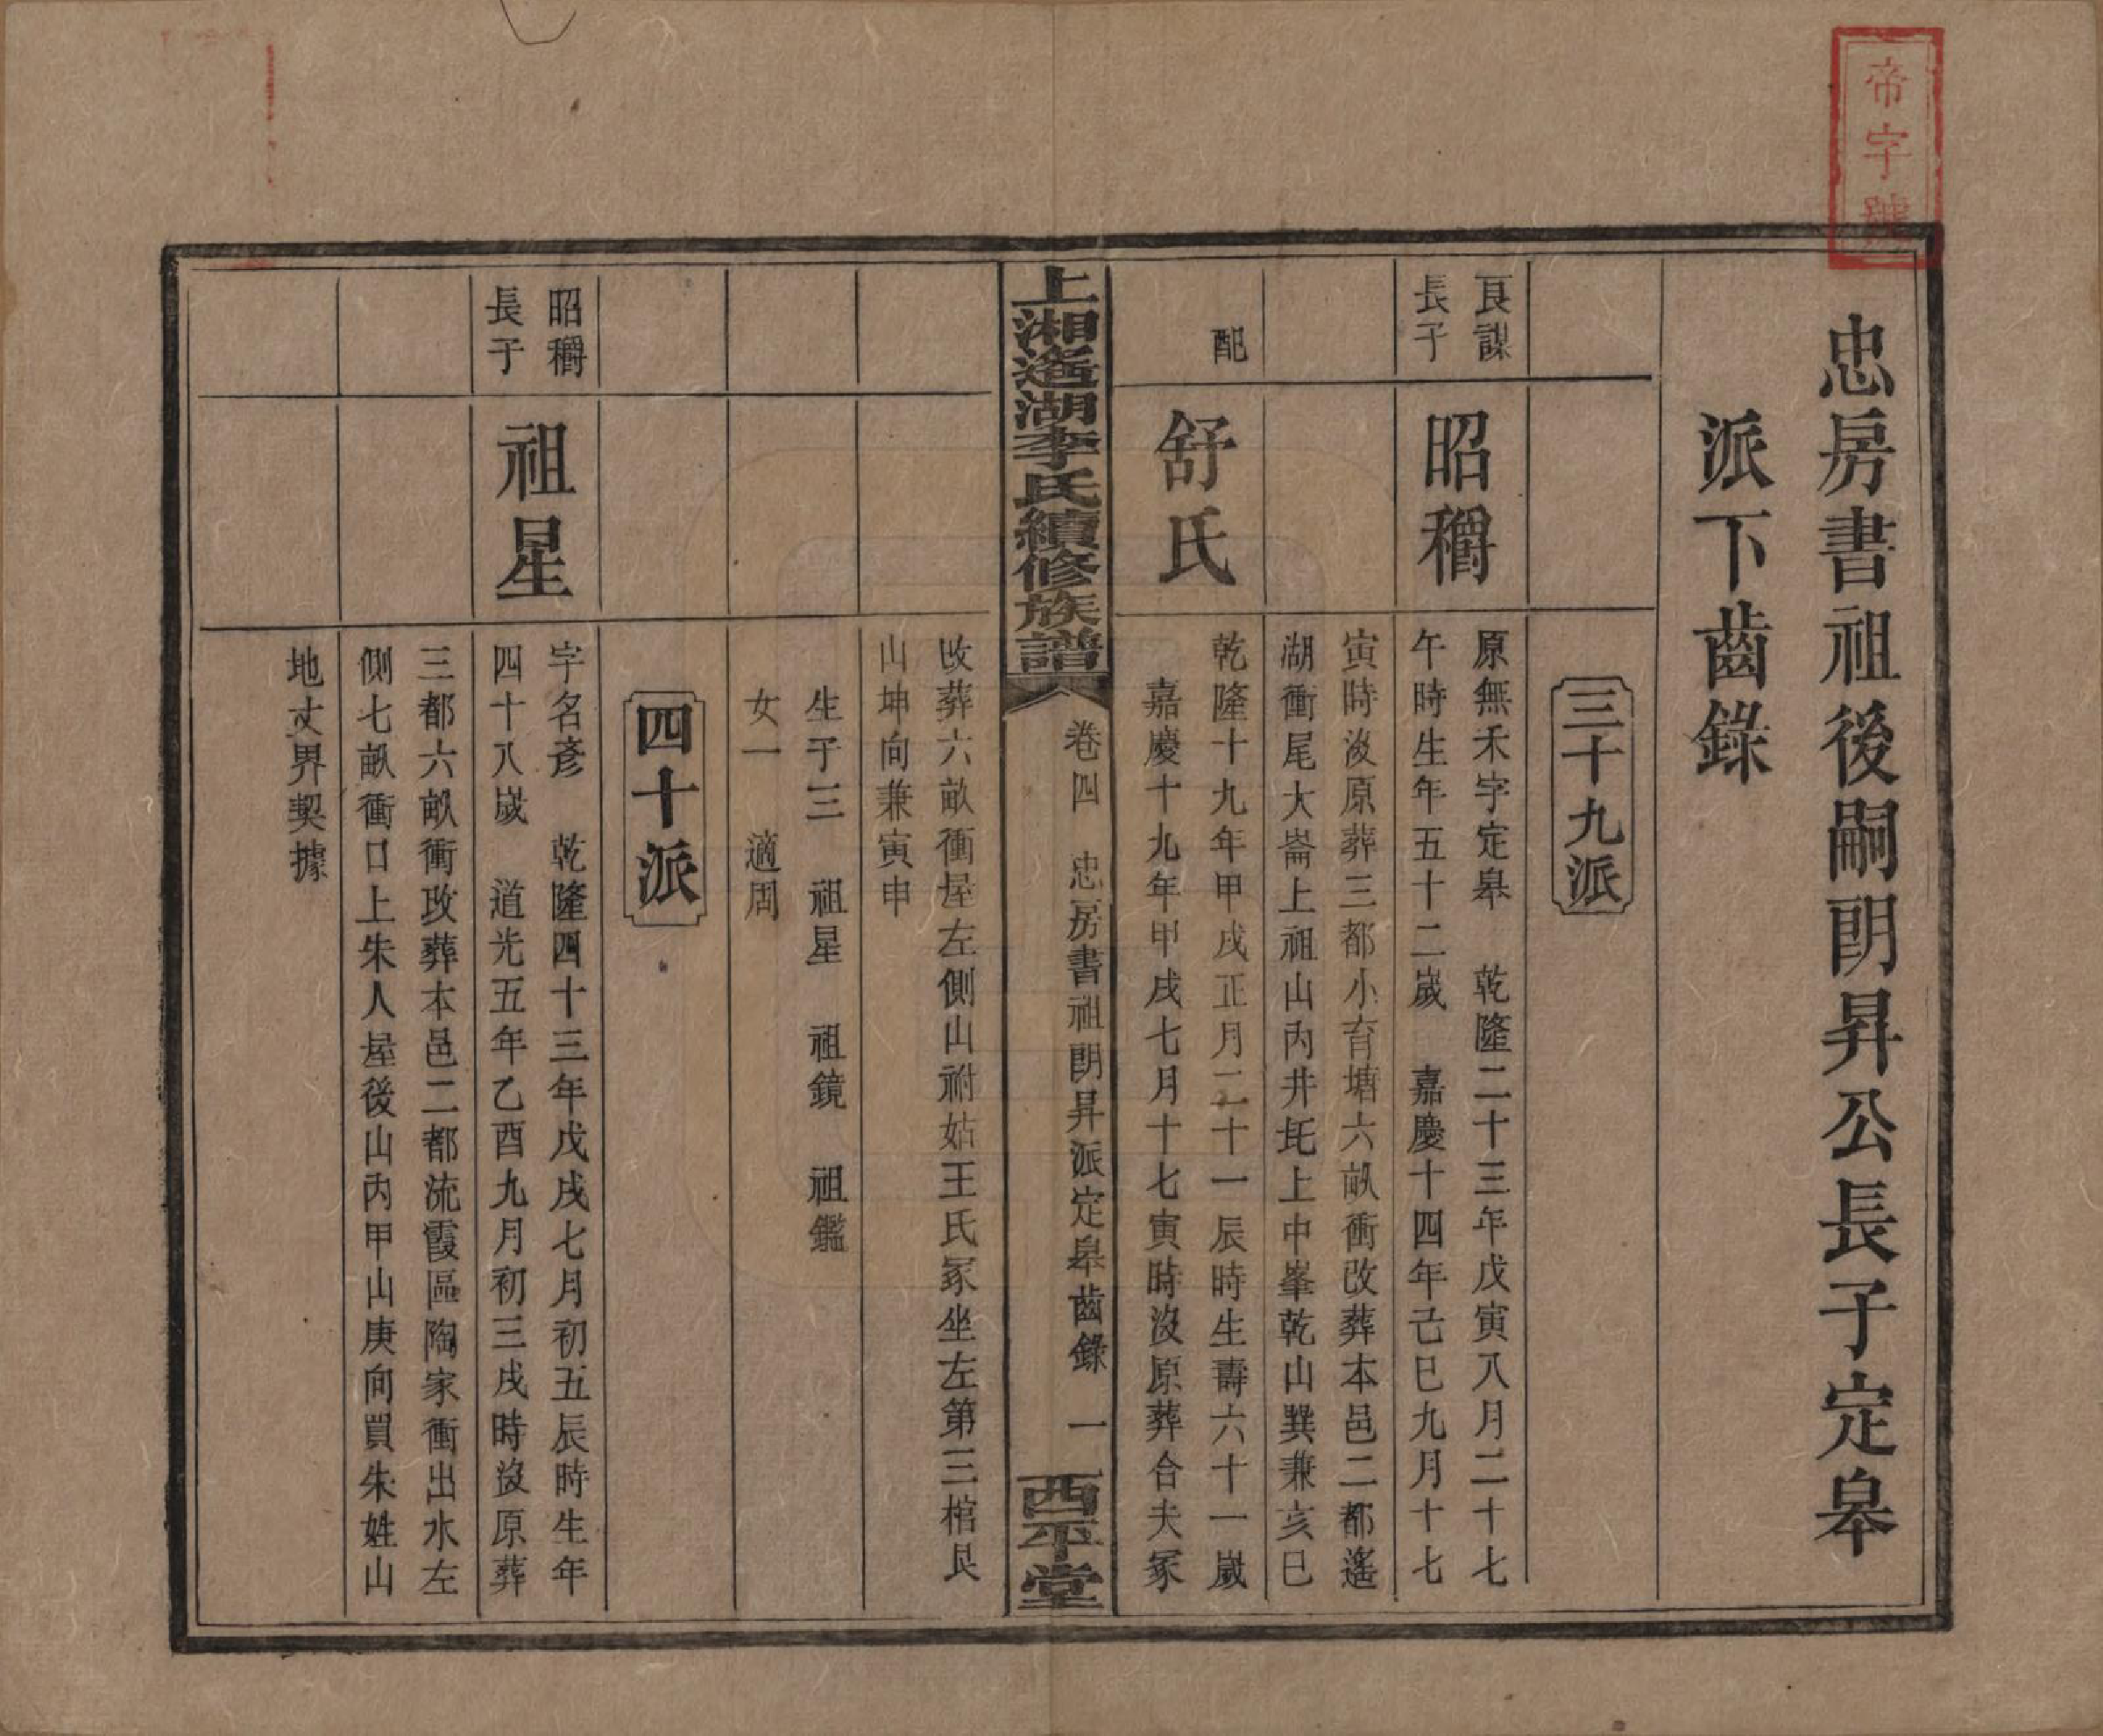 帝字號
忠房書祖後嗣朗昇公長子定皋
派下齒錄
三十九派
良謀
長子
昭穳
原無禾字定皋 乾隆二十三年戊寅八月二十七
午時生年五十二歲 嘉慶十四年己巳九月十七
寅時沒原葬三都小育塘六畝衝改葬本邑二都遙
湖衝尾大崙上祖山內井坵上中峯乾山巽兼亥巳
配
舒氏
乾隆十九年甲戌正月二十一辰時生壽六十一歲
嘉慶十九年甲戌七月十七寅時沒原葬合夫冢
上湘遙湖李氏續修族譜
卷四 忠房書祖朗昇派定皋齒錄 一
西平堂
改葬六畝衝屋左側山祔姑王氏冢坐左第三棺艮
山坤向兼寅申
生子三 祖星 祖鏡 祖鑑
女一 適周
四十派
昭穳
長子
祖星
字名彥 乾隆四十三年戊戌七月初五辰時生年
四十八歲 道光五年乙酉九月初三戌時沒原葬
三都六畝衝改葬本邑二都流霞區陶家衝出水左
側七畝衝口上朱人屋後山內甲山庚向買朱姓山
地丈界契據